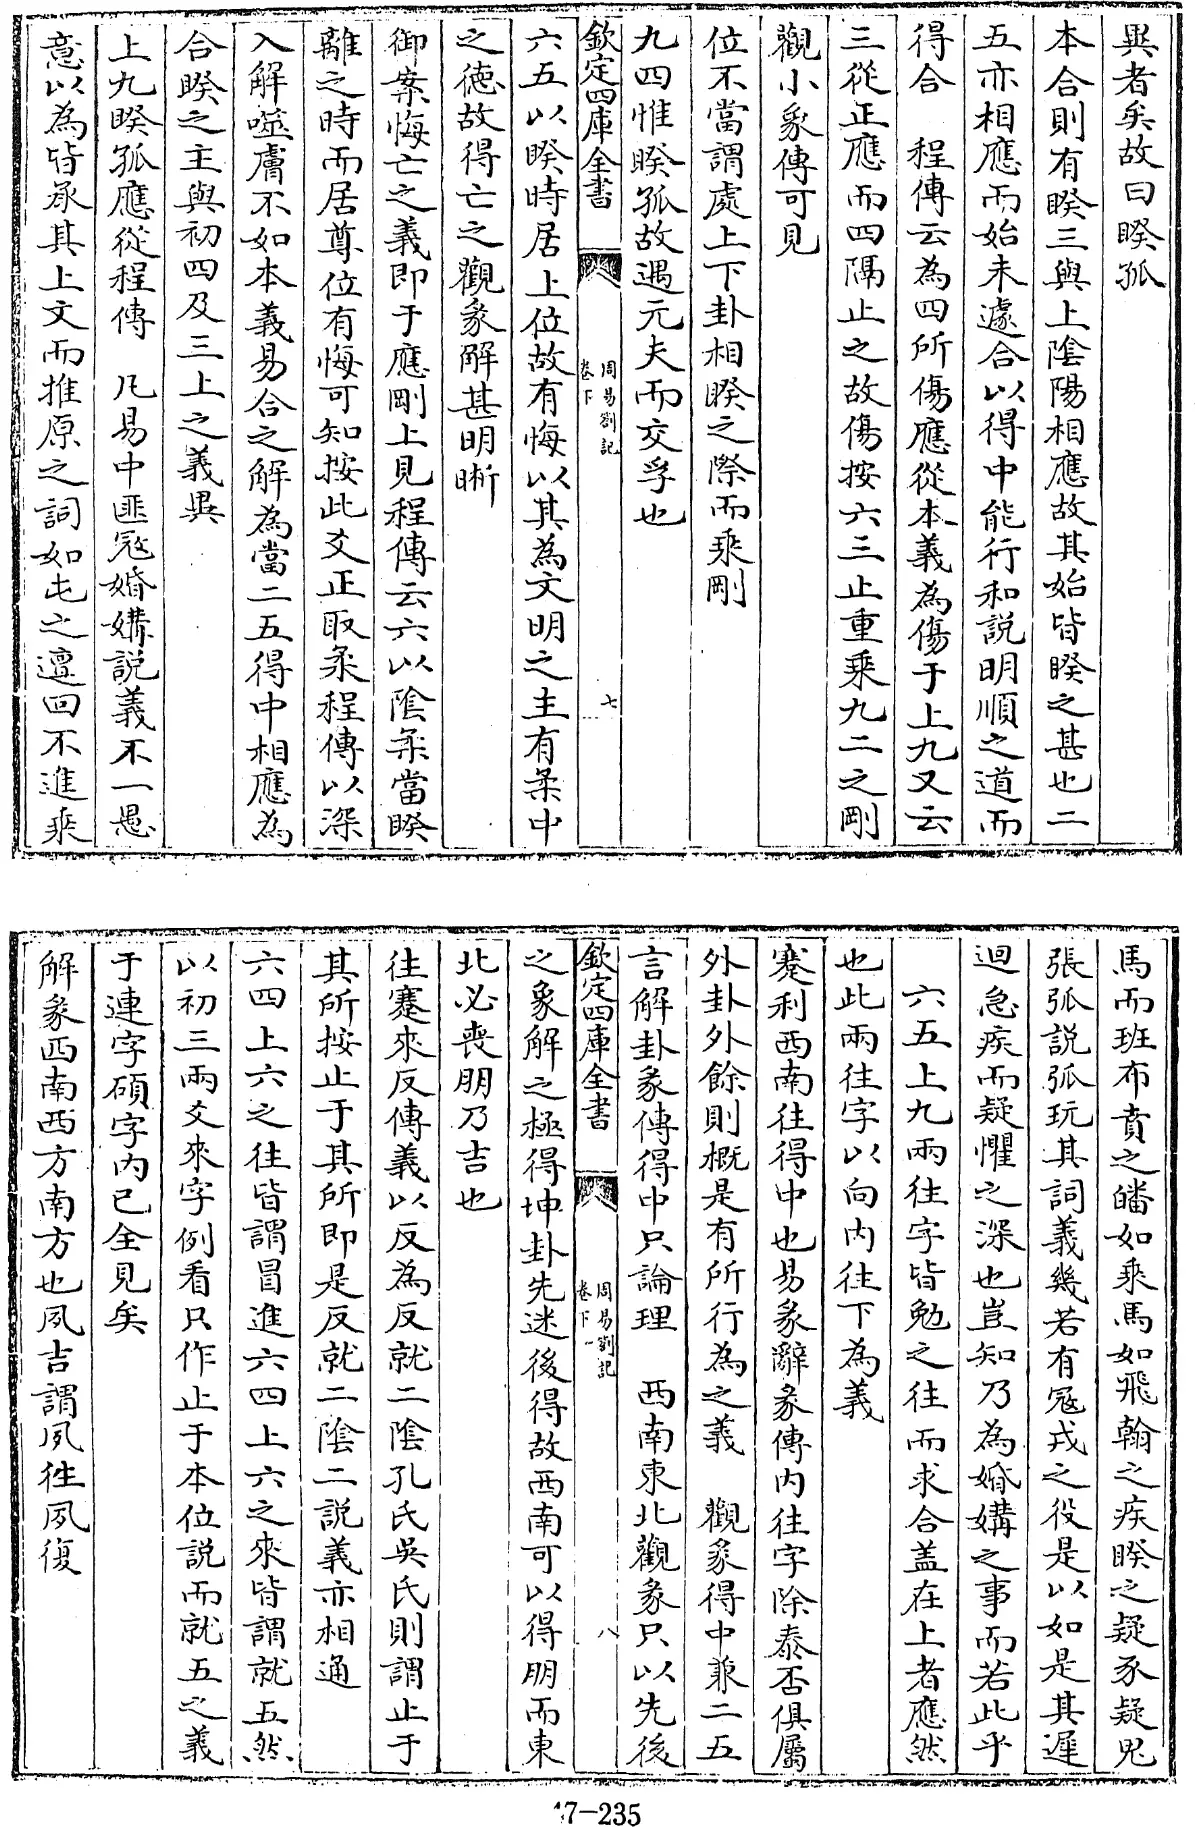 異者矣故曰睽孤
本合則有睽三與上陰陽相應故其始皆睽之甚也二
五亦相應而始未遽合以得中能行和說明順之道而
得合　程傳云為四所傷應從本義為傷于上九又云
三從正應而四隔止之故傷按六三止重乘九二之剛
觀小象傳可見
位不當謂處上下卦相睽之際而乘剛
九四惟睽孤故遇元夫而交孚也
欽定四庫全書
周易劄記
卷下
七
六五以睽時居上位故有悔以其為文明之主有柔中
之德故得亡之觀彖解甚明晰
御案悔亡之義即于應剛上見程傳云六以陰柔當睽
離之時而居尊位有悔可知按此爻正取柔程傳以深
入解噬膚不如本義易合之解為當二五得中相應為
合睽之主與初四及三上之義異
上九睽孤應從程傳　凡易中匪寇婚媾說義不一愚
意以為皆承其上文而推原之詞如屯之邅回不進乘
馬而班布賁之皤如乘馬如飛翰之疾睽之疑豕疑鬼
張弧說弧玩其詞義幾若有寇戎之役是以如是其遲
迴急疾而疑懼之深也豈知乃為婚媾之事而若此乎
六五上九兩往字皆勉之往而求合蓋在上者應然
也此兩往字以向內往下為義
蹇利西南往得中也易彖辭彖傳內往字除泰否俱屬
外卦外餘則概是有所行為之義　觀彖得中兼二五
言解卦彖傳得中只論理　西南東北觀彖只以先後
欽定四庫全書
周易劄記
卷下
八
之象解之極得坤卦先迷後得故西南可以得朋而東
北必喪朋乃吉也
往蹇來反傳義以反為反就二陰孔氏吳氏則謂止于
其所按止于其所即是反就二陰二說義亦相通
六四上六之往皆謂冒進六四上六之來皆謂就五然
以初三兩爻來字例看只作止于本位說而就五之義
于連字碩字內已全見矣
解彖西南西方南方也夙吉謂夙往夙復
17-235